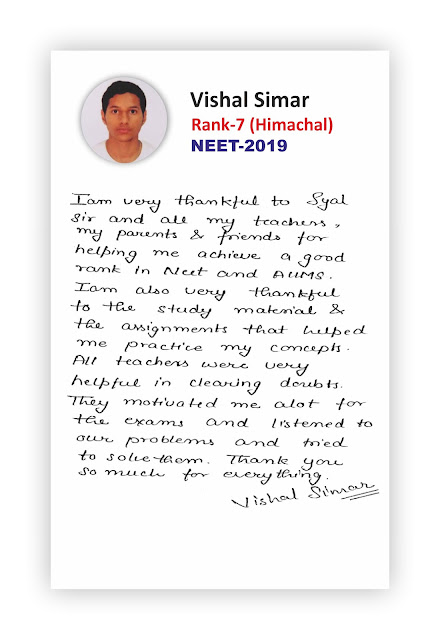 Vishal Simar
Rank-7 (Himachal)
NEET-2019
I am very thankful to Syal
Sir and all my teachers,
my parents & friends for
helping me achieve a good
rank in Neet and AIIMS.
I am also very thankful
to the study material &
the assignments that helped
me practice my concepts.
All teachers were very
helpful in clearing doubts.
They motivated me alot for
the exams and listened to
our problems and tried
to solve them. Thank you
so much for everything.
Vishal Simar